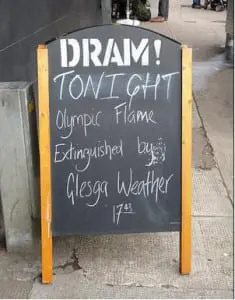 DRAM!
TONIGHT
Olympic Flame
Extinguished by
Glesga Weather
17.45